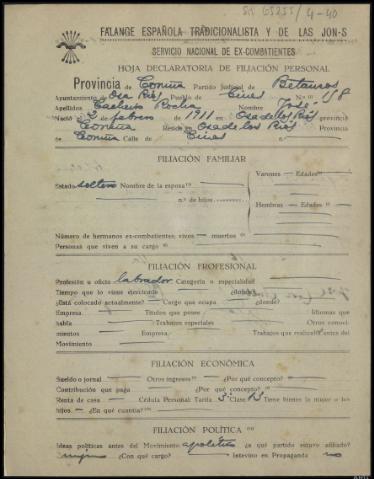 4-40
FALANGE ESPAÑOLA TRADICIONALISTA Y DE LAS JON-S
SERVICIO NACIONAL DE EX-COMBATIENTES
HOJA DECLARATORIA DE FILIACIÓN PERSONAL
Provincia de Coruña Partido Judicial de Betanzos
Ayuntamiento de Oza Rios Pueblo de Cines N.º 158
Apellidos Cacheiro Rocha Nombre José
Nació el 2 de febrero de 1911 en Oza de los Rios provincia
Coruña Reside en Oza de los Rios Provincia
de Coruña Calle de Cines n.º
FILIACIÓN FAMILIAR
Estado soltero Nombre de la esposa
n.º de hijos
Varones — Edades
Hembras — Edades
Número de hermanos ex-combatientes, vivos — muertos
Personas que viven a su cargo
FILIACIÓN PROFESIONAL
Profesión u oficio labrador Categoría o especialidad
Tiempo que lo viene ejerciendo ¿dónde?
¿Está colocado actualmente? Cargo que ocupa ¿donde?
Empresa Títulos que posee Idiomas que
habla Trabajos especiales Otros conoci-
mientos Empresa Trabajos que realizó antes del
Movimiento
FILIACIÓN ECONÓMICA
Sueldo o jornal Otros ingresos ¿Por qué concepto?
Contribución que paga ¿Por qué concepto?
Renta de casa — Cédula Personal Tarifa 3ª Clase 13 Tiene bienes la mujer o los
hijos — ¿En qué cuantía?
FILIACIÓN POLÍTICA
Ideas políticas antes del Movimiento apolítico ¿a qué partido estuvo afiliado?
ninguno ¿Con qué cargo? Intervino en Propaganda no